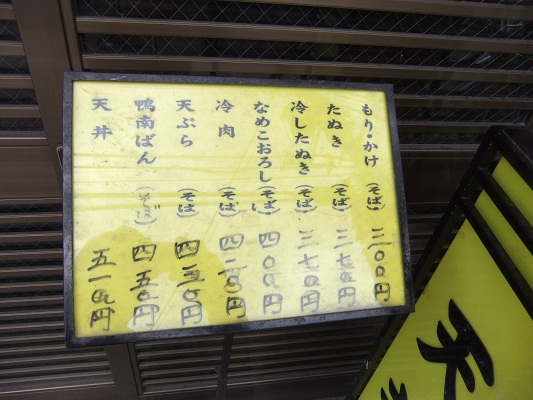 もり・かけ（そば）三〇〇円
たぬき（そば）三七〇円
冷したぬき（そば）三七〇円
なめこおろし（そば）四〇〇円
冷肉（そば）四二〇円
天ぷら（そば）四三〇円
鴨南ばん（そば）四五〇円
天丼 五一〇円
天